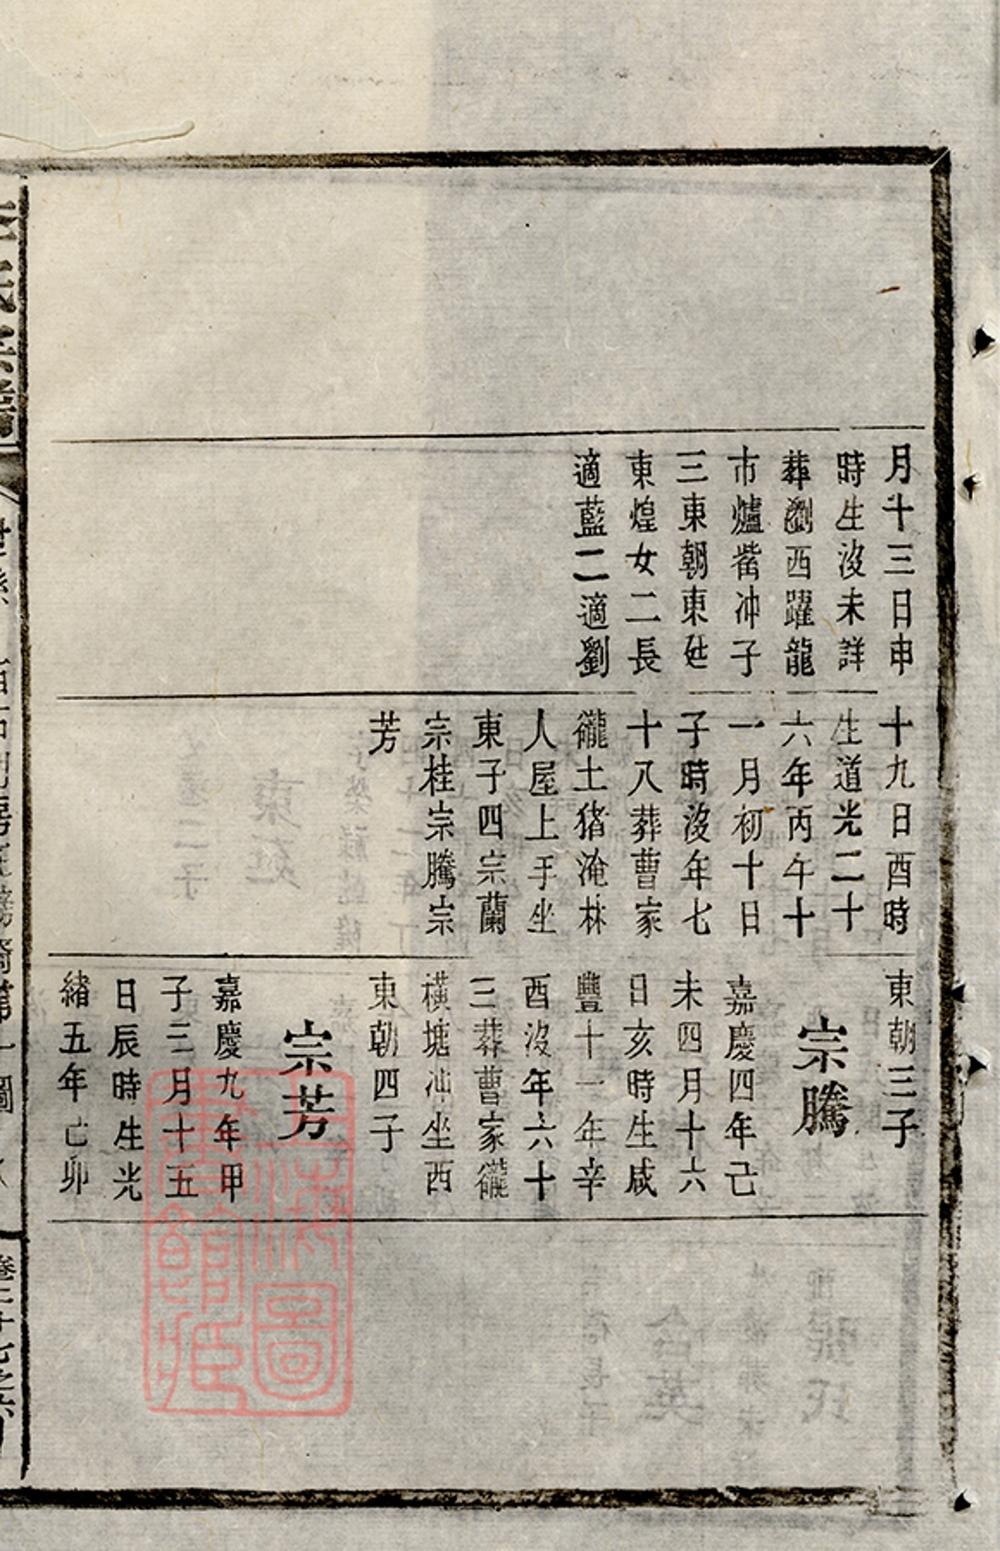 月十三日申
時生沒未詳
葬瀏西躍龍
市爐觜冲子
三東朝東
東煌女二長
適藍二適劉
十九日酉時
生道光二十
六年丙午十
一月初十日
子時沒年七
十八葬曹家
土猪淹林
人屋上手坐
東子四宗蘭
宗桂宗騰宗
芳
東朝三子
宗騰
嘉慶四年己
未四月十六
日亥時生咸
豐十一年辛
酉沒年六十
三葬曹家
橫塘冲坐西
東朝四子
宗芳
嘉慶九年甲
子三月十五
日辰時生光
緒五年己卯
上海圖書館藏